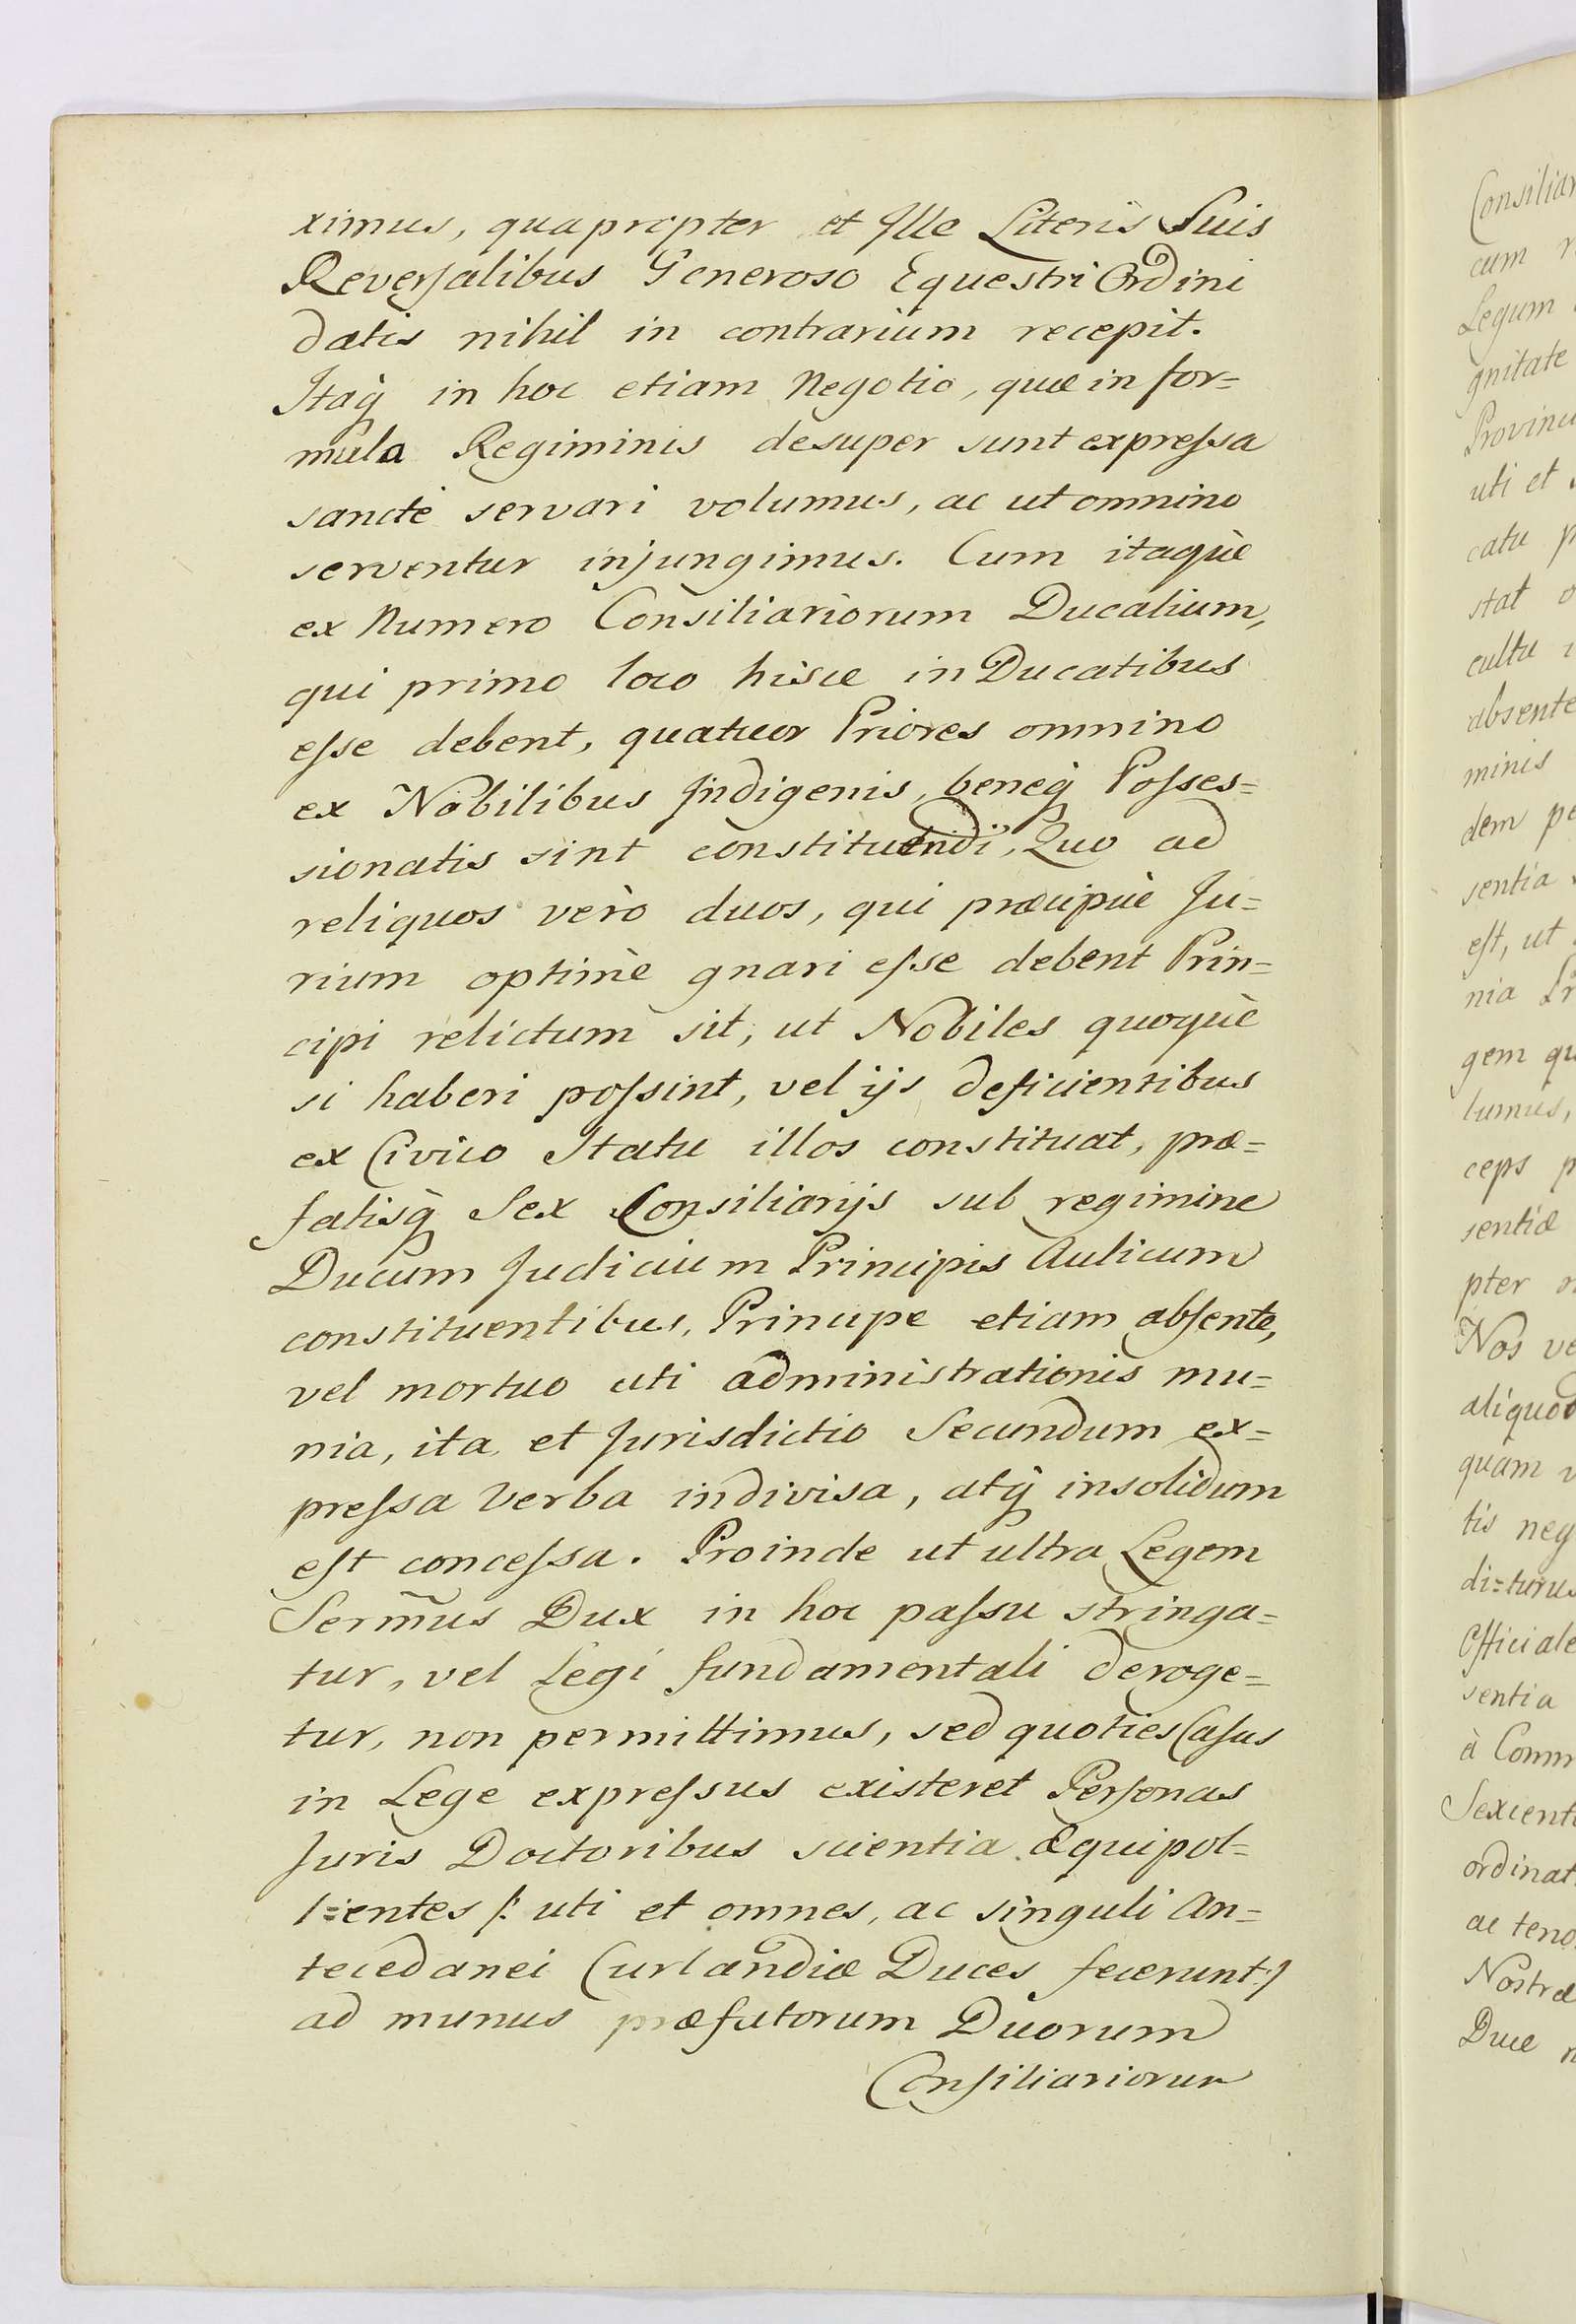 ximus, quapropter et Ille Literis Suis
Reversalibus Generoso Equestri Ordini
datis nihil in contrarium recepit.
Itaq̀ in hoc etiam Negotio, quæ in for=
mula Regiminis desuper sunt expressa
sanctè servari volumus, ac ut omnino
serventur injungimus. Cum itaquè
ex Numero Consiliariorum Ducalium,
qui primo loco hisce in Ducatibus
esse debent, quatuor Priores omnino
ex Nobilibus Indigenis, beneq̀ Posses=
sionatis sint constituendi, Quo ad
reliquos verò duos, qui præcipuè Ju=
rium optimè gnari esse debent Prin=
cipi relictum sit, ut Nobiles quoquè
si haberi possint, vel ijs deficientibus
ex Civico Statu illos constituat, præ=
fatisq̀ Sex Consiliarijs sub regimine
Ducum Judicium Principis Aulicum
constituentibus, Principe etiam absente,
vel mortuo uti administrationis mu=
nia, ita et Jurisdictio Secundum ex=
pressa Verba indivisa, atq̀ insolidum
est concessa. Proinde ut ultra Legem
Serm̃us Dux in hoc passu stringa=
tur, vel Legi fundamentali deroge=
tur, non permittimus, sed quoties Casus
in Lege expressus existeret Personas
Juris Doctoribus scientia æquipol=
l=entes /: uti et omnes, ac singuli An=
tecedanei Curlandiæ Duces fecerunt :/
ad munus præfatorum Duorum
Consiliariorum
Consiliar
cum
Legum
gnitate
Provinci
uti et
catu
stat
cultu
absente
minis
dem pe
sentia
est, ut
nia
gem qu
lumus,
ceps
sentiæ
pter
Nos ve
aliquod
quam
tis neg
di=turus
Officiale
sentia
à Comm
Sexcent
ordinat
ac teno
Nostræ
Duce